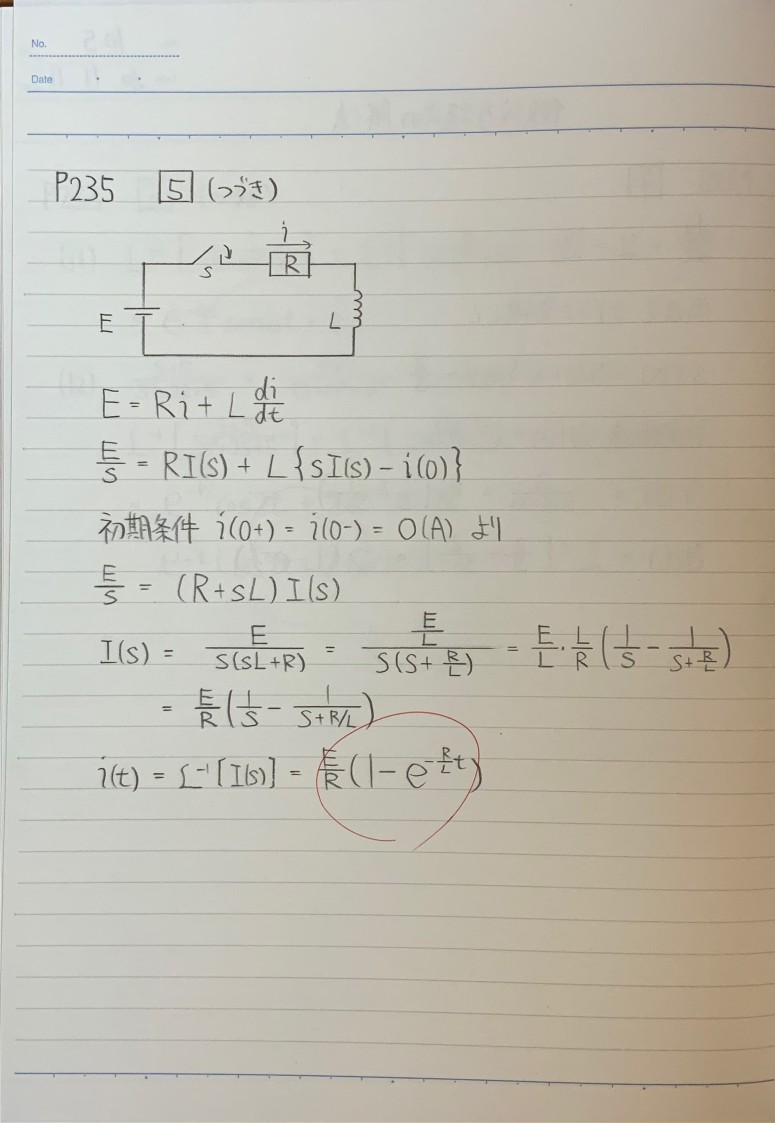 No.
Date
P235 5 (つづき)
i
S R
E L
E = Ri + L di/dt
E/S = RI(s) + L{sI(s) - i(0)}
初期条件 i(0+) = i(0-) = 0(A) より
E/S = (R+sL)I(s)
I(s) = E/S(sL+R) = E/L/S(S+R/L) = E/L・L/R(1/S - 1/S+R/L)
= E/R(1/S - 1/S+R/L)
i(t) = L⁻¹[I(s)] = E/R(1-e^-R/Lt)